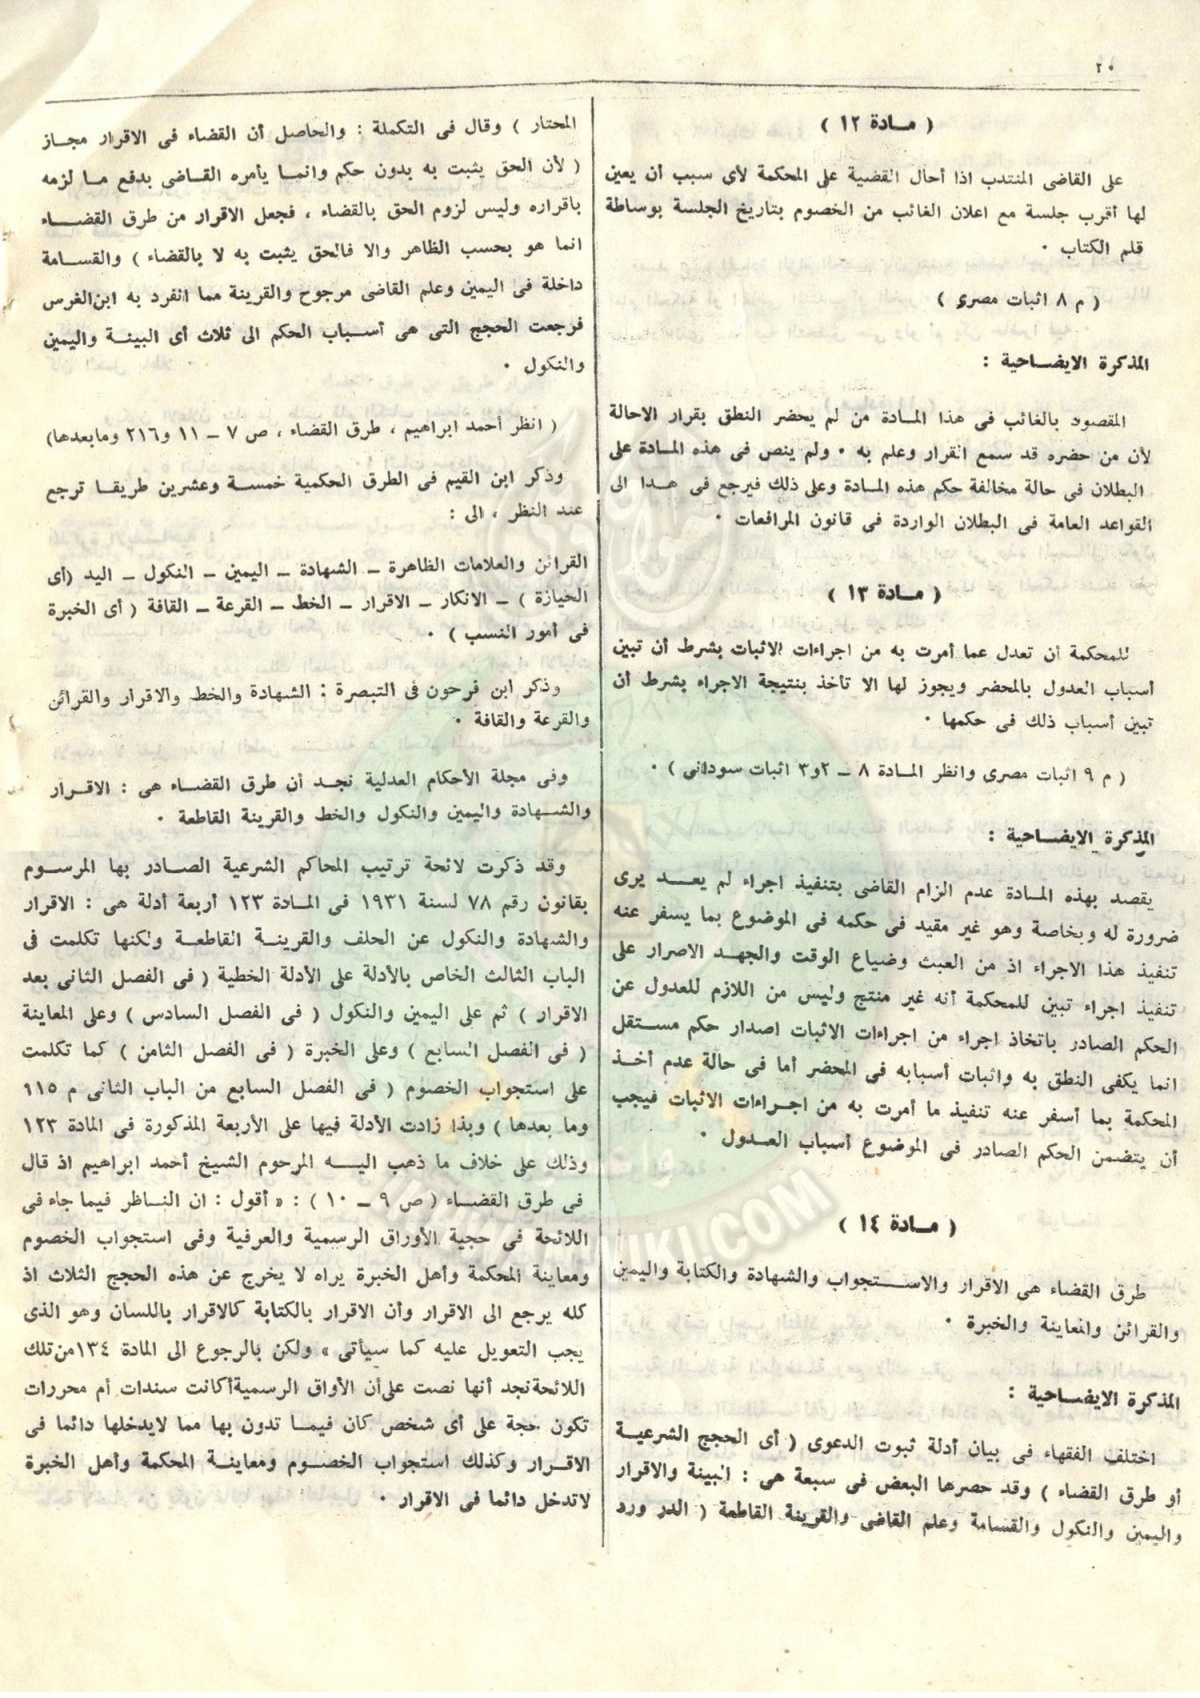 ٢٠
( مـادة ١٢ )
على القاضى المنتدب اذا أحال القضية على المحكمة لأى سبب أن يعين
لها أقرب جلسة مع اعلان الغائب من الخصوم بتاريخ الجلسة بوساطة
قلم الكتاب ·
( م ٨ اثبات مصرى )
المذكرة الايضـاحية :
المقصود بالغائب فى هذا المادة من لم يحضر النطق بقرار الاحالة
لأن من حضره قد سمع القرار وعلم به · ولم ينص فى هذه المـادة على
البطلان فى حالة مخالفة حكم هذه المـادة وعلى ذلك فيرجع فى هـدا الى
القواعد العامة فى البطلان الواردة فى قانون المرافعات ·
( مـادة ١٣ )
للمحكمة أن تعدل عما أمرت به من اجراءات الاثبات بشرط أن تبين
أسباب العدول بالمحضر ويجوز لها الا تأخذ بنتيجة الاجراء بشرط أن
تبين أسباب ذلك فى حكمها ·
( م ٩ اثبات مصرى وانظر المـادة ٨ ــ ٢و٣ اثبات سودانى ) ·
المذكرة الايضـاحية :
يقصد بهذه المـادة عدم الزام القاضى بتنفيذ اجراء لم يعــد يرى
ضرورة له وبخاصة وهو غير مقيد فى حكمه فى الموضوع بما يسفر عنه
تنفيذ هذا الاجراء اذ من العبث وضياع الوقت والجهـد الاصرار على
تنفيذ اجراء تبين للمحكمة أنه غير منتج وليس من اللازم للعدول عن
الحكم الصادر باتخاذ اجراء من اجراءات الاثبات اصدار حكم مستـقل
انما يكفى النطق به واثبات أسبابه فى المحضر أما فى حالة عدم أخـذ
المحكمة بما أسفر عنه تنفيذ ما أمرت به من اجـراءات الاثبات فيجب
أن يتضمن الحكم الصادر فى الموضوع أسباب العـدول ·
( مـادة ١٤ )
طرق القضاء هى الاقرار والاسـتجواب والشهادة والكتابة واليمين
والقرائن والمعاينة والخبرة ·
المذكرة الايضـاحية :
اختلف الفقهاء فى بيان أدلة ثبوت الدعوى ( أى الحجج الشرعيـة
أو طرق القضاء ) وقد حصرها البعض فى سبعة هى : البينة والاقرار
واليمين والنكول والقسامة وعلم القاضى والقرينة القاطعة ( الدر ورد
المحتار ) وقال فى التكملة : والحاصل أن القضاء فى الاقرار مجـاز
( لأن الحق يثبت به بدون حكم وانمـا يأمره القـاضى بدفع مـا لزمه
باقراره وليس لزوم الحق بالقضاء ، فجعل الاقرار من طرق القضـاء
انما هو بحسب الظاهر والا فالحق يثبت به لا بالقضاء ) والقسـامة
داخلة فى اليمين وعلم القاضى مرجوح والقرينة مما انفرد به ابن الغرس
فرجعت الحجج التى هى أسـباب الحكم الى ثلاث أى البينـة واليمين
والنكول ·
( انظر أحمد ابراهيم ، طرق القضاء ، ص ٧ ــ ١١ و٢١٦ ومابعدها)
وذكر ابن القيم فى الطرق الحكمية خمسـة وعشرين طريقـا ترجع
عند النظر ، الى :
القرائن والعلامات الظاهرة ــ الشهادة ــ اليمين ــ النكول ــ اليد (أى
الحيازة ) ــ الانكار ــ الاقرار ــ الخط ــ القرعة ــ القافة ( أى الخبرة
فى أمور النسب ) ·
وذكر ابن فرحون فى التبصرة : الشهادة والخط والاقرار والقرائن
والقرعة والقافة ·
وفى مجلة الأحكام العدلية نجـد أن طرق القضـاء هى : الاقـرار
والشـهادة واليمين والنكول والخط والقرينة القاطعة ·
وقد ذكرت لائحة ترتيب المحاكم الشرعية الصـادر بها المرسوم
بقانون رقم ٧٨ لسنة ١٩٣١ فى المـادة ١٢٣ أربعة أدلة هى : الاقرار
والشهادة والنكول عن الحلف والقرينة القاطعـة ولكنها تكلمت فى
الباب الثالث الخاص بالأدلة على الأدلة الخطية ( فى الفصل الثانى بعد
الاقرار ) ثم على اليمين والنكول ( فى الفصل السادس ) وعلى المعاينة
( فى الفصل السابع ) وعلى الخبرة ( فى الفصل الثامن ) كما تكلمت
على استجواب الخصوم ( فى الفصل السابع من الباب الثانى م ١١٥
وما بعدها ) وبذا زادت الأدلة فيها على الأربعة المذكورة فى المادة ١٢٣
وذلك على خلاف ما ذهب اليـه المرحوم الشيخ أحمد ابراهيم اذ قال
فى طرق القضـاء ( ص ٩ ــ ١٠ ) : « أقول : ان النـاظر فيما جاء فى
اللائحة فى حجية الأوراق الرسمية والعرفية وفى استجواب الخصوم
ومعاينة المحكمة وأهل الخبرة يراه لا يخرج عن هذه الحجج الثلاث اذ
كله يرجع الى الاقرار وأن الاقرار بالكتابة كالاقرار باللسان وهو الذى
يجب التعويل عليه كما سيأتى » ولكن بالرجوع الى المادة ١٣٤ من تلك
اللائحة نجد أنها نصت على أن الأواق الرسمية أكانت سندات أم محررات
تكون حجة على أى شخص كان فيمـا تدون بها مما لايدخلها دائما فى
الاقـرار وكذلك استجواب الخصـوم ومعاينـة المحكمة وأهل الخبرة
لاتدخل دائما فى الاقرار ·